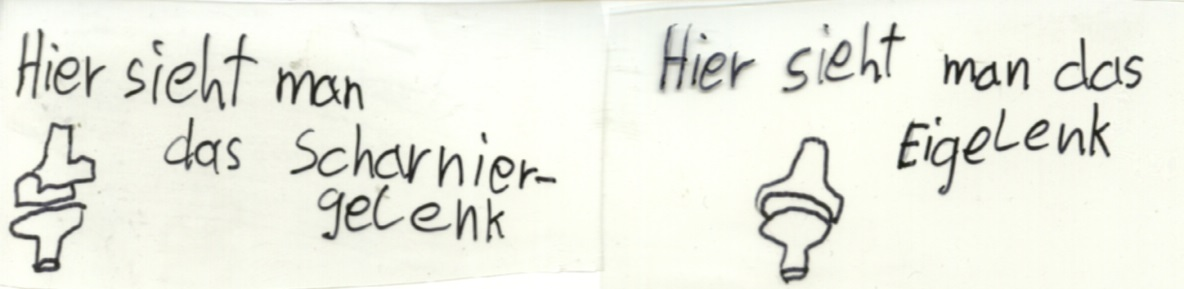 Hier sieht man
das Scharnier-
gelenk
Hier sieht man das
Eigelenk